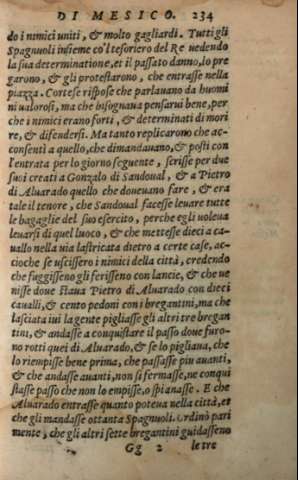 DI MESICO. 234
do i nimici uniti, & molto gagliardi. Tutti gli
Spagnuoli insieme co'l tesoriero del Re uedendo
la sua determinatione, et il passato danno, lo pre
garono, & gli protestarono, che entrasse nella
piazza. Cortese rispose che parlauano da huomi
ni ualorosi, ma che bisognaua pensarui bene, per
che i nimici erano forti, & determinati di mori
re, & difendersi. Ma tanto replicarono che ac-
consenti a quello, che dimandauano, & posti con
l'entrata per lo giorno seguente, scrisse per due
suoi creati a Gonzalo di Sandoual, & a Pietro
di Aluarado quello che doueuano fare, & era
tale il tenore, che Sandoual facesse leuare tutte
le bagaglie del suo esercito, perche egli uoleua
leuarsi di quel luoco, & che mettesse dieci a ca-
uallo nella uia lastricata dietro a certe case, ac-
cioche se uscissero i nimici della città, credendo
che fuggissero gli ferissero con lancie, & che ue
nisse doue staua Pietro di Aluarado con dieci
caualli, & cento pedoni con i bregantini, ma che
lasciata iui la gente pigliasse gli altri tre bregan
tini, & andasse a conquistare il passo doue furo-
no rotti quei di Aluarado, & se lo pigliaua, che
lo riempisse bene prima, che passasse piu auanti,
& che andasse auanti, non si fermasse, ne conqui
stasse passo che non lo empisse, o spianasse. E che
Aluarado entrasse quanto poteua nella città, et
che gli mandasse ottanta Spagnuoli. Ordinò pari
mente, che gli altri sette bregantini guidassero
Gg 2 le tre